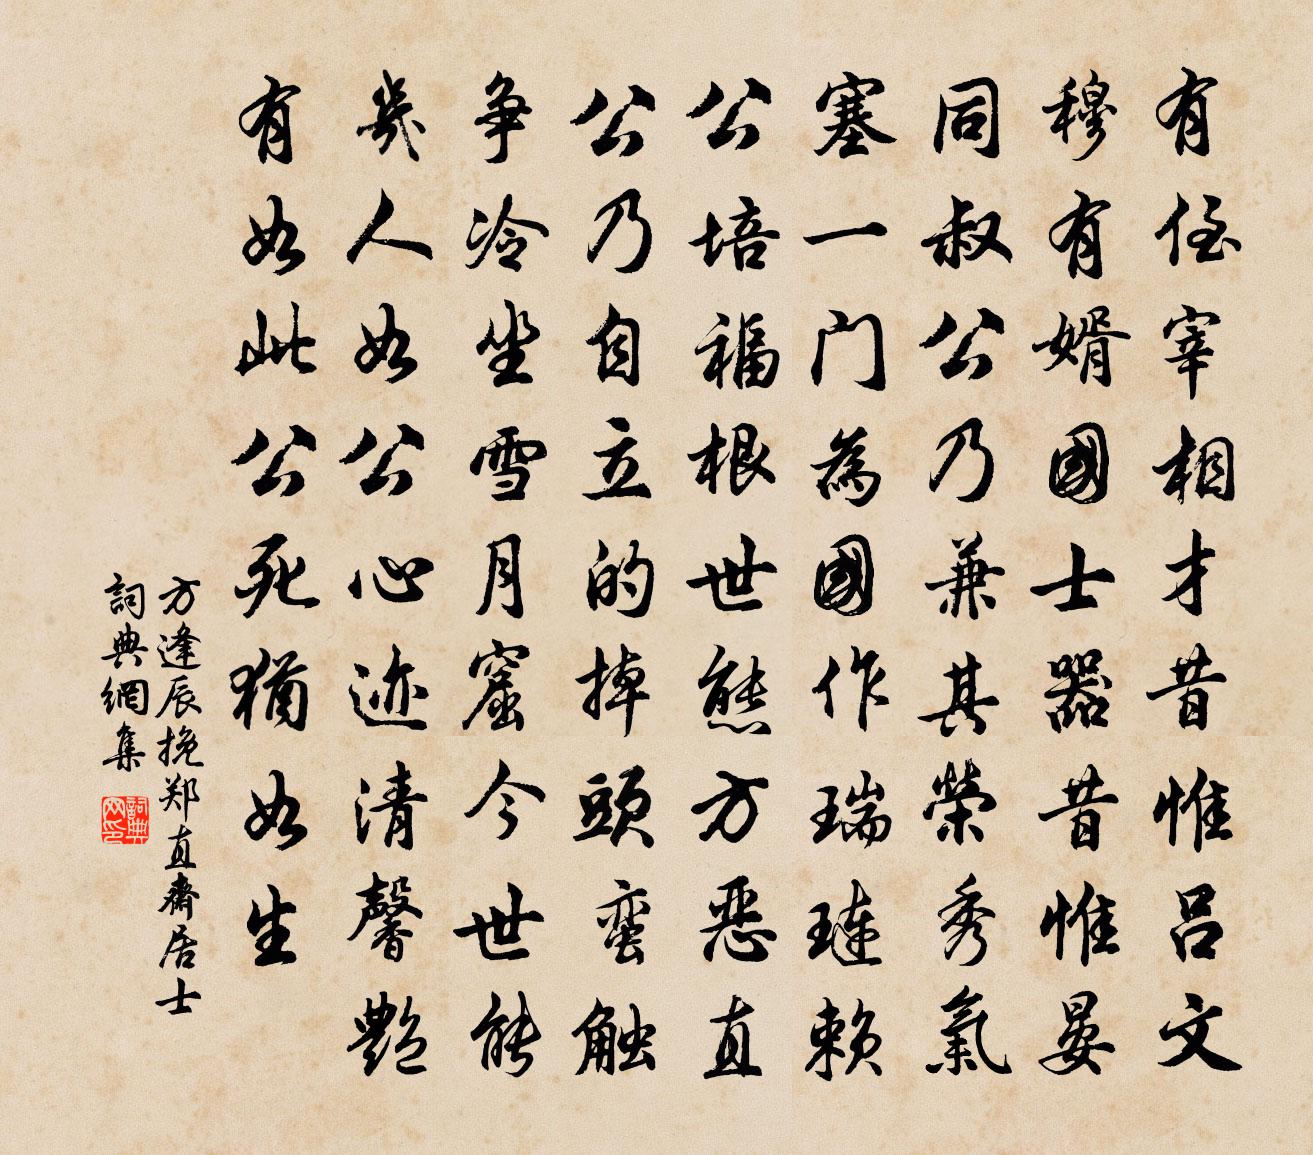 有侄宰相才昔惟吕文
穆有婿國士器昔惟晏
同叔公乃兼其榮秀氣
塞一门為國作瑞璉賴
公培福根世態方惡直
公乃自立的掉頭蛮触
争冷坐雪月窟今世能
幾人如公心迹清馨艷
有如此公死猶如生
方逢辰挽郑直齋居士
詞典網集
詞典网印